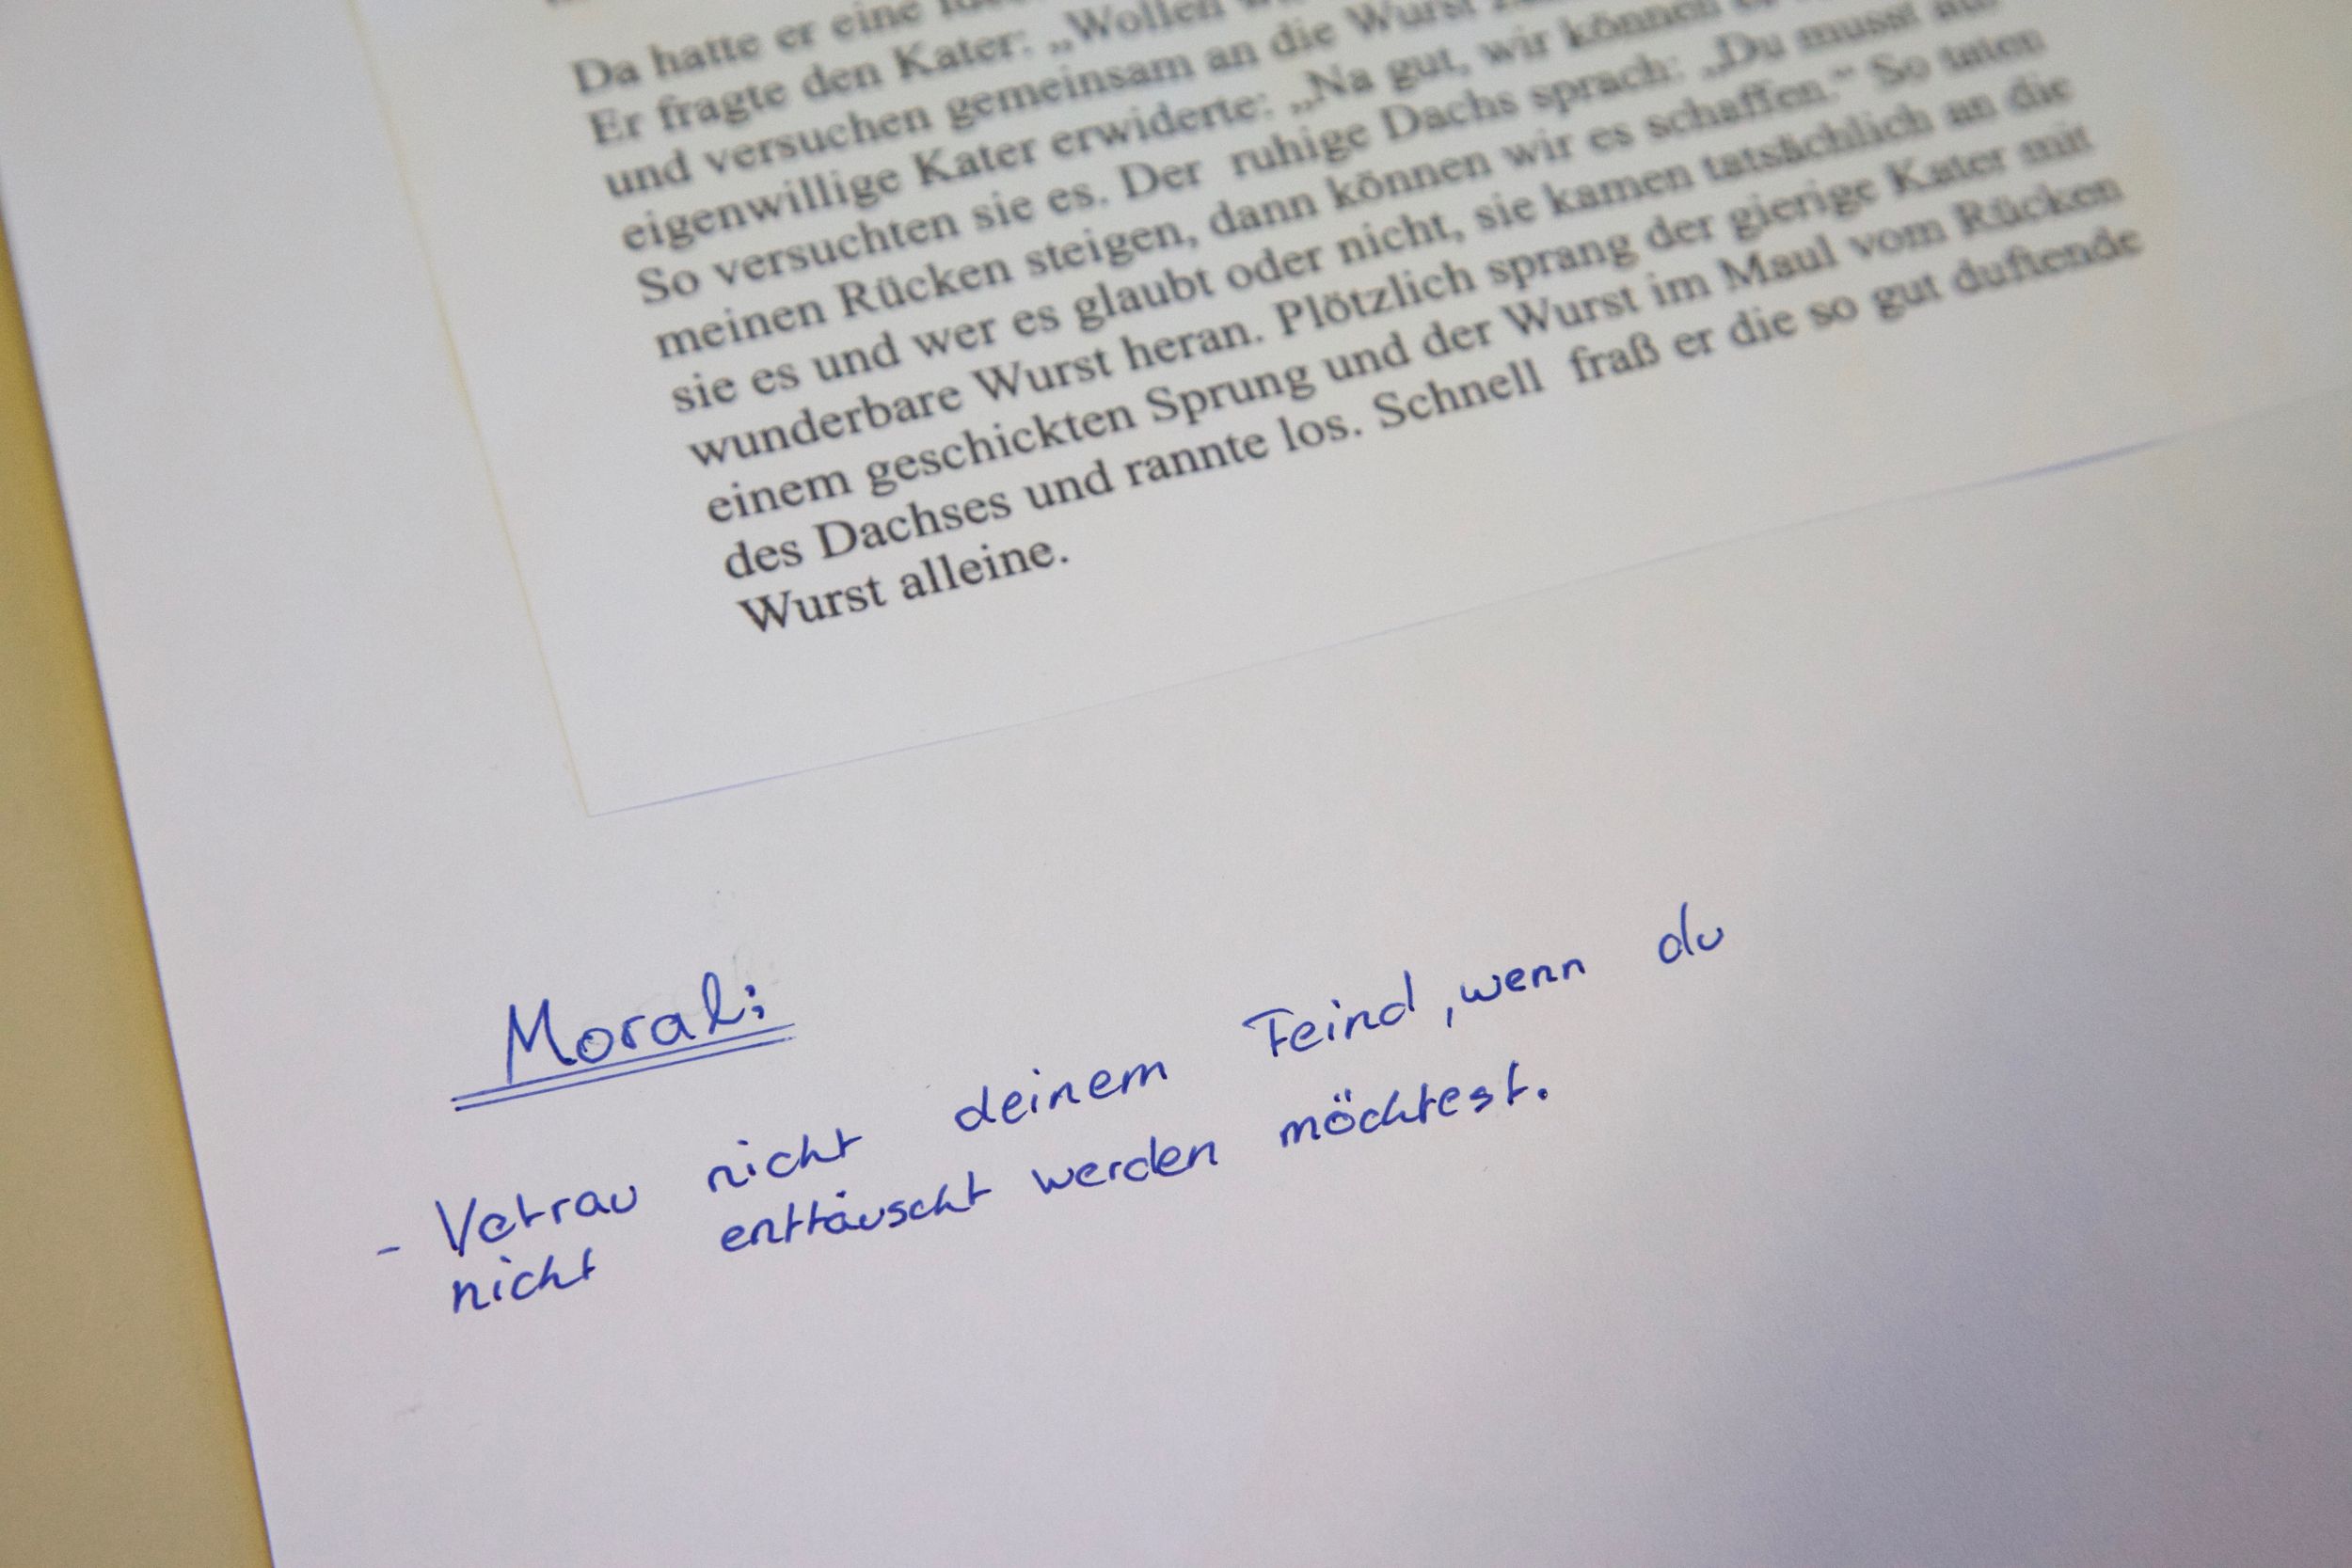 Da hatte er eine
Er fragte den Kater: „Wollen
und versuchen gemeinsam an die Wurst
eigenwillige Kater erwiderte: „Na gut, wir können
So versuchten sie es. Der ruhige Dachs sprach: „Du musst auf
meinen Rücken steigen, dann können wir es schaffen.“ So taten
sie es und wer es glaubt oder nicht, sie kamen tatsächlich an die
wunderbare Wurst heran. Plötzlich sprang der gierige Kater mit
einem geschickten Sprung und der Wurst im Maul vom Rücken
des Dachses und rannte los. Schnell fraß er die so gut duftende
Wurst alleine.
Moral:
- Vetrau nicht deinem Feind, wenn du
nicht enttäuscht werden möchtest.